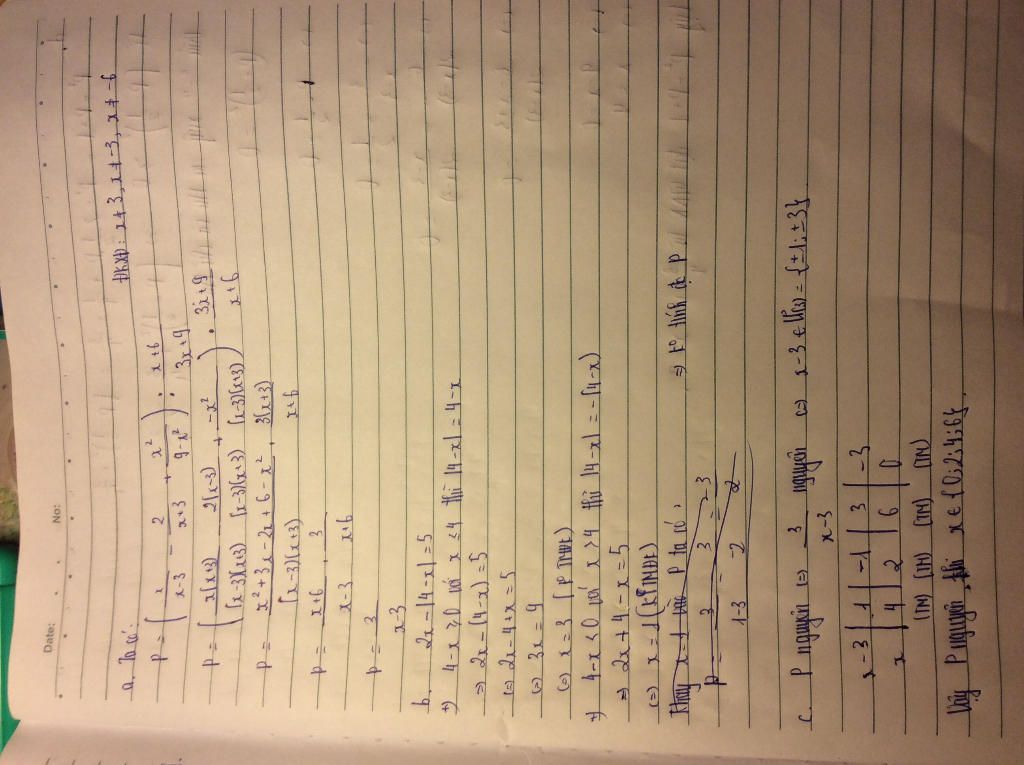 Date: No:
a. Ta có: ĐKXĐ: x ≠ 3, x ≠ -3, x ≠ -6
P = ( x/(x-3) - 2/(x+3) + x²/(9-x²) ) : (x+6)/(3x+9)
P = ( x(x+3)/((x-3)(x+3)) - 2(x-3)/((x-3)(x+3)) + -x²/((x-3)(x+3)) ) . (3x+9)/(x+6)
P = (x²+3x-2x+6-x²)/((x-3)(x+3)) . 3(x+3)/(x+6)
P = (x+6)/(x-3) . 3/(x+6)
P = 3/(x-3)
b. 2x-|4-x| = 5
+) 4-x ≥ 0 với x ≤ 4 thì |4-x| = 4-x
=> 2x-(4-x) = 5
(=) 2x-4+x = 5
(=) 3x = 9
(=) x = 3
+) 4-x < 0 với x > 4 thì |4-x| = -(4-x)
=> 2x+4-x = 5
(=) x = 1
Thay x = 1 vào P ta có: => ko tính đc P
P = 3/(1-3) = 3/-2 = -3/2
c. P nguyên (=) 3/(x-3) nguyên (=) x-3 ∈ Ư(3) = {±1; ±3}
x-3 | 1 | -1 | 3 | -3
x | 4 | 2 | 6 | 0
(TM) (TM) (TM) (TM)
Vậy P nguyên thì x ∈ {0; 2; 4; 6}.